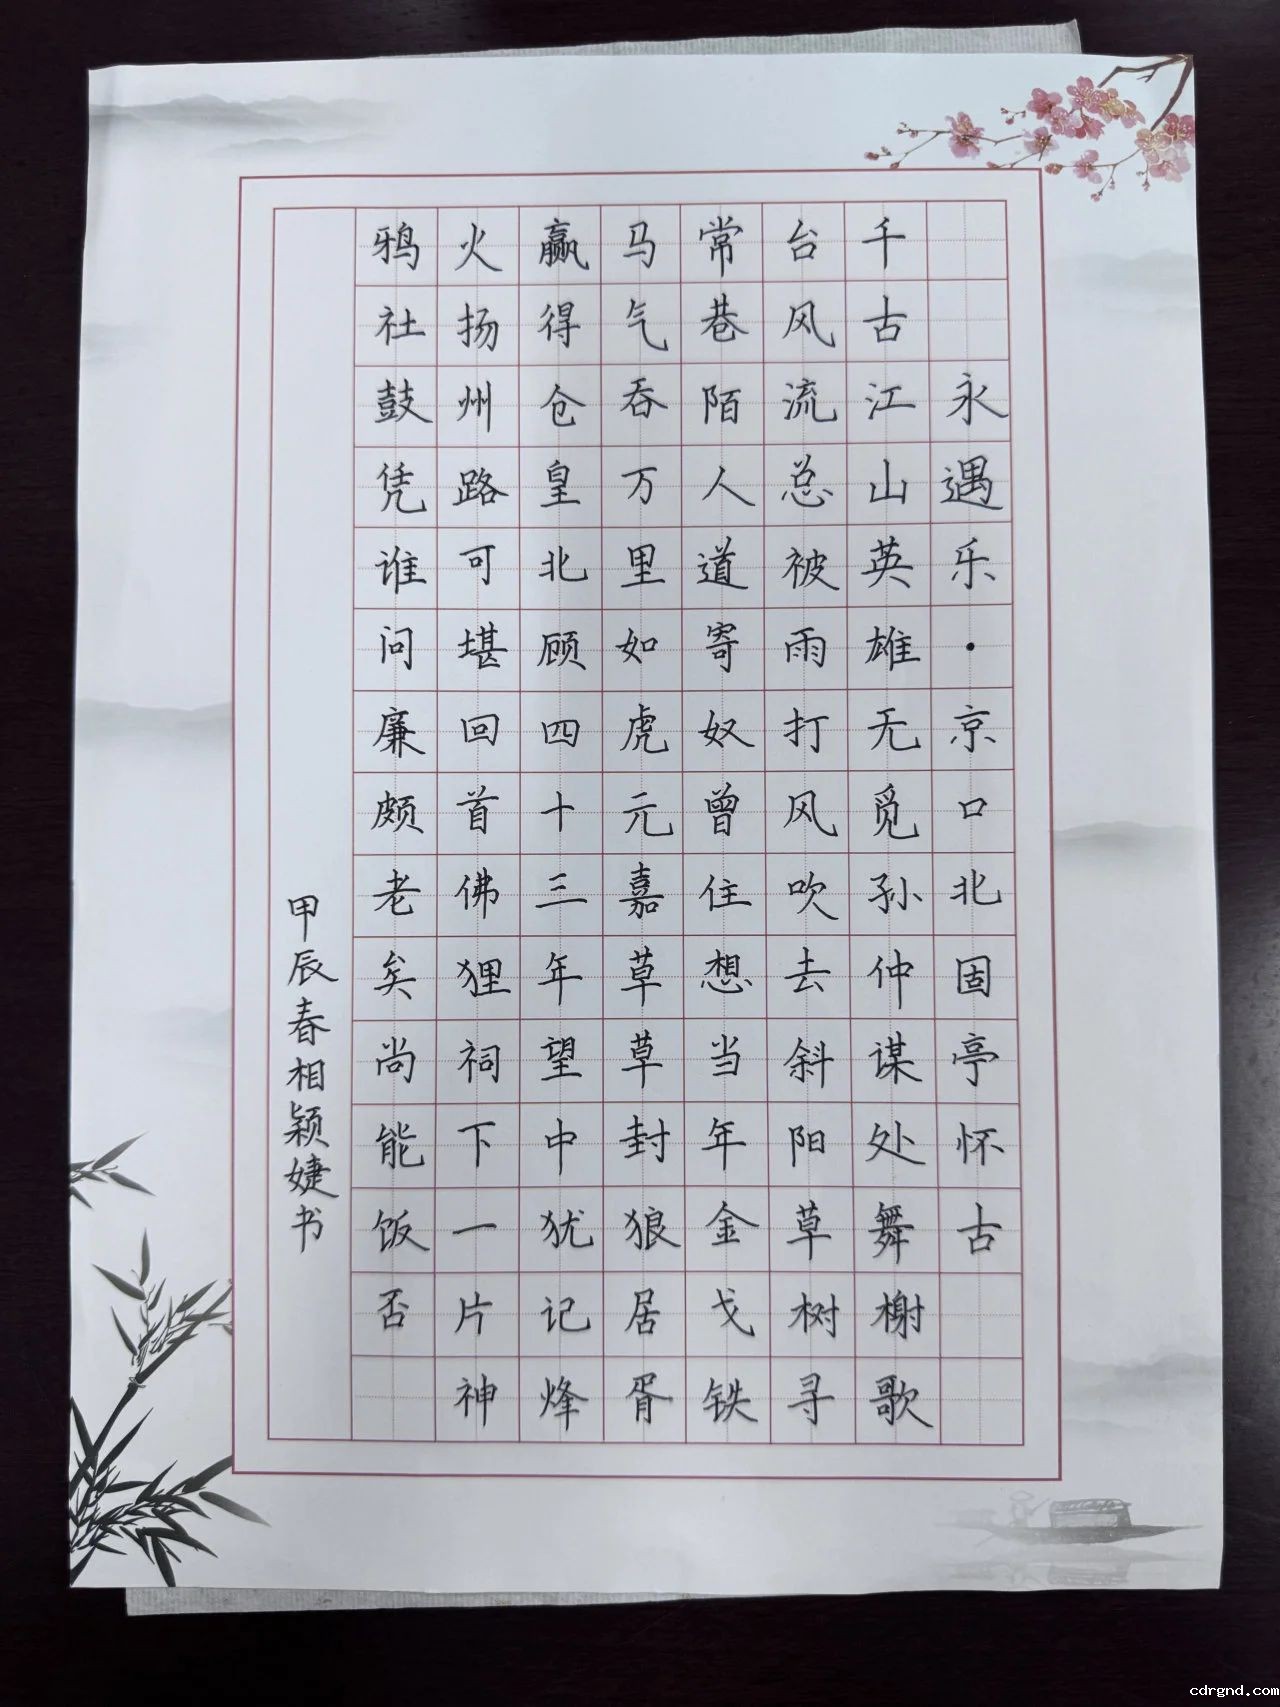 永遇乐·京口北固亭怀古
千古江山英雄无觅孙仲谋处舞榭歌
台风流总被雨打风吹去斜阳草树寻
常巷陌人道寄奴曾住想当年金戈铁
马气吞万里如虎元嘉草草封狼居胥
赢得仓皇北顾四十三年望中犹记烽
火扬州路可堪回首佛狸祠下一片神
鸦社鼓凭谁问廉颇老矣尚能饭否
甲辰春相颖婕书
cdrgnd.com